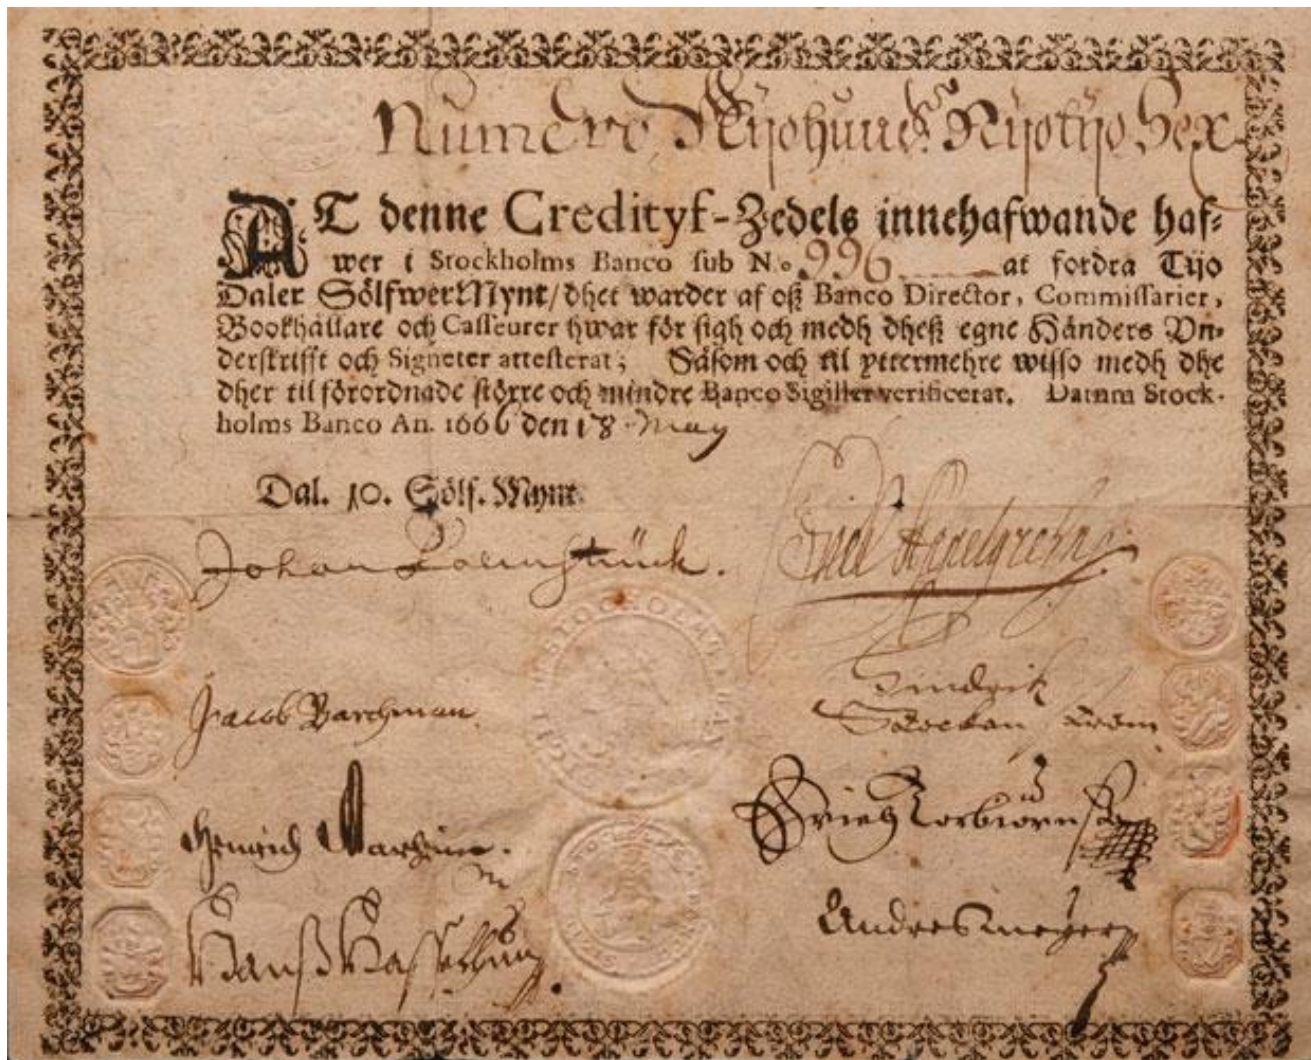 Numero Nijohund. Nijotijo Sex
AT denne Credityf-Zedels innehafwande haf-
wer i Stockholms Banco sub N.o 996 at fordra Tijo
Daler SölfwerMynt/dhet warder af oß Banco Director, Commissarier,
Bookhållare och Casseurer hwar för sigh och medh dheß egne Händers Vn-
derskrifft och Signeter attesterat; Såsom och til yttermehre wisso medh dhe
dher til förordnade större och mindre Banco Sigiller verificerat. Datum Stock-
holms Banco An. 1666 den 18 May
Dal. 10. Sölf. Mynt
Johan
Jacob Barchman
Hindrik
Henrich
Hanß
Anders